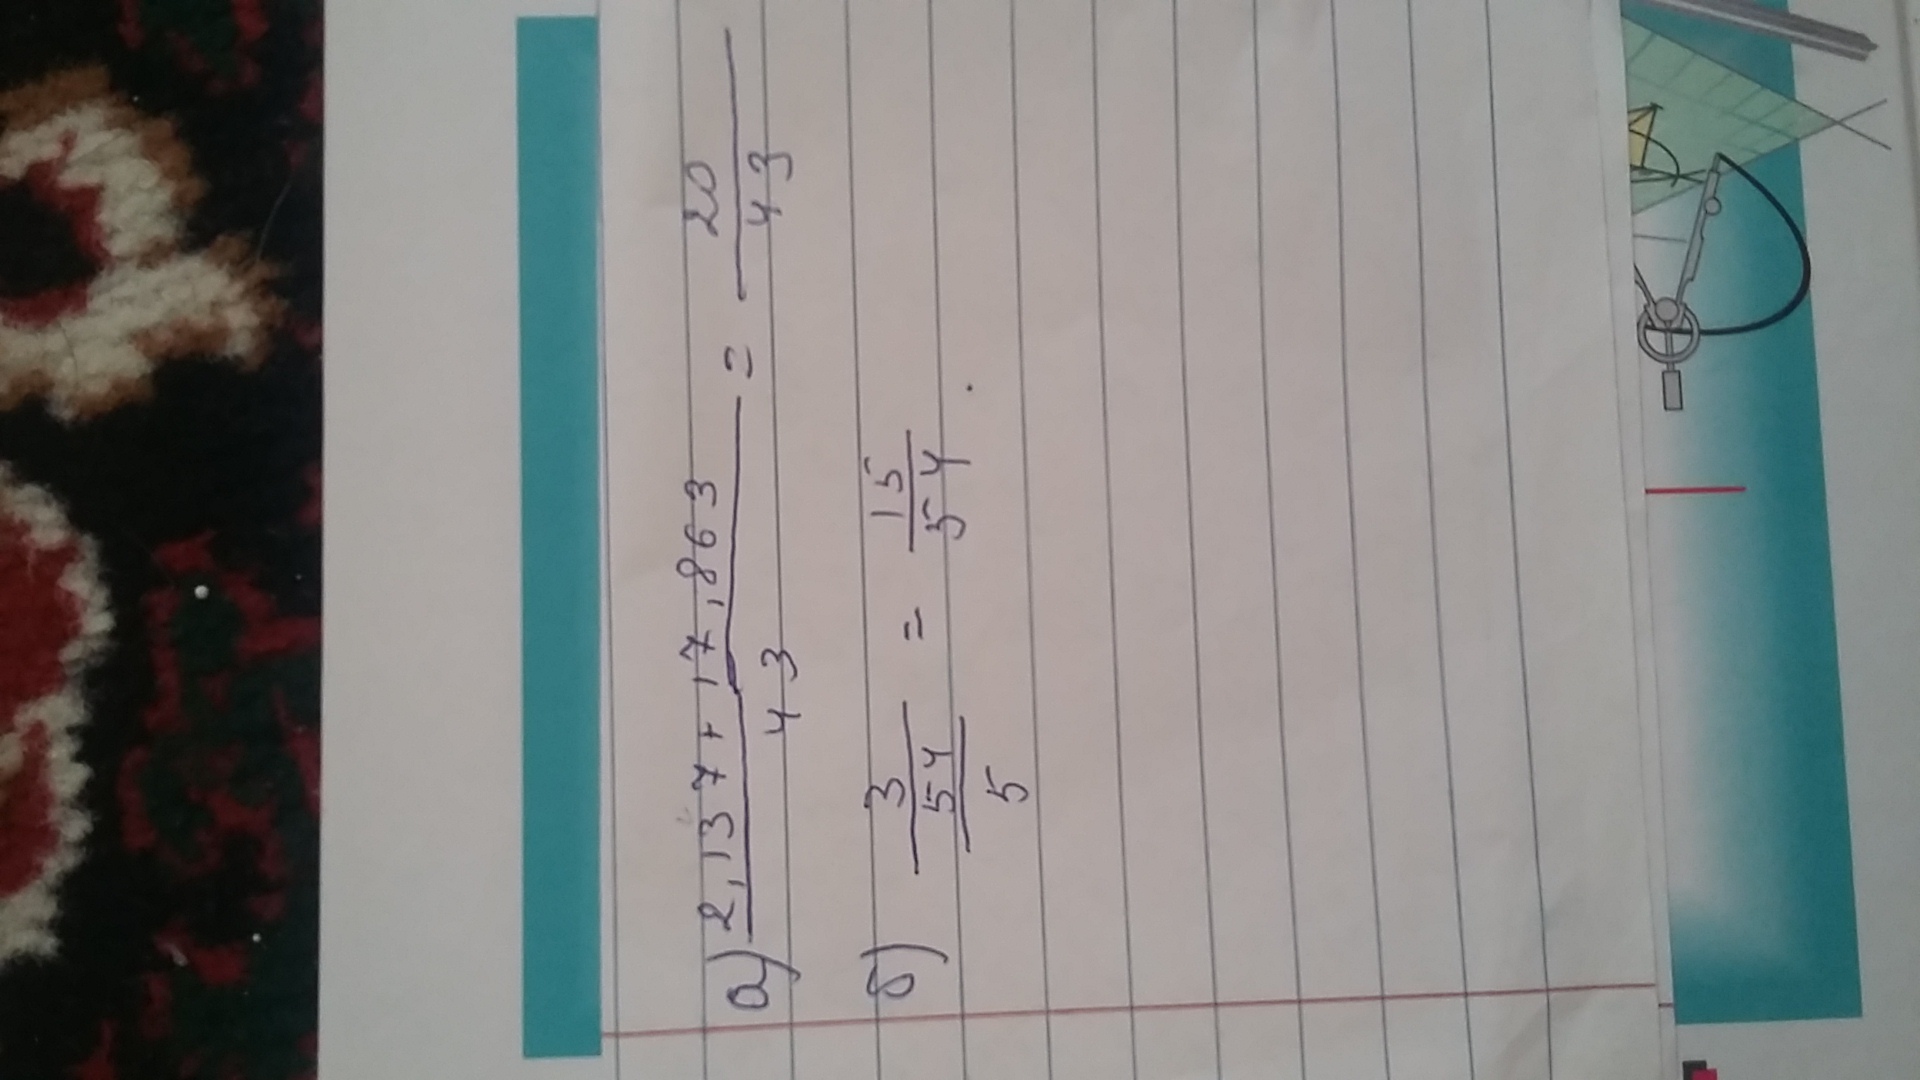 а) (2,137 + 17,863)/43 = 20/43
б) 3/(54/5) = 15/54.